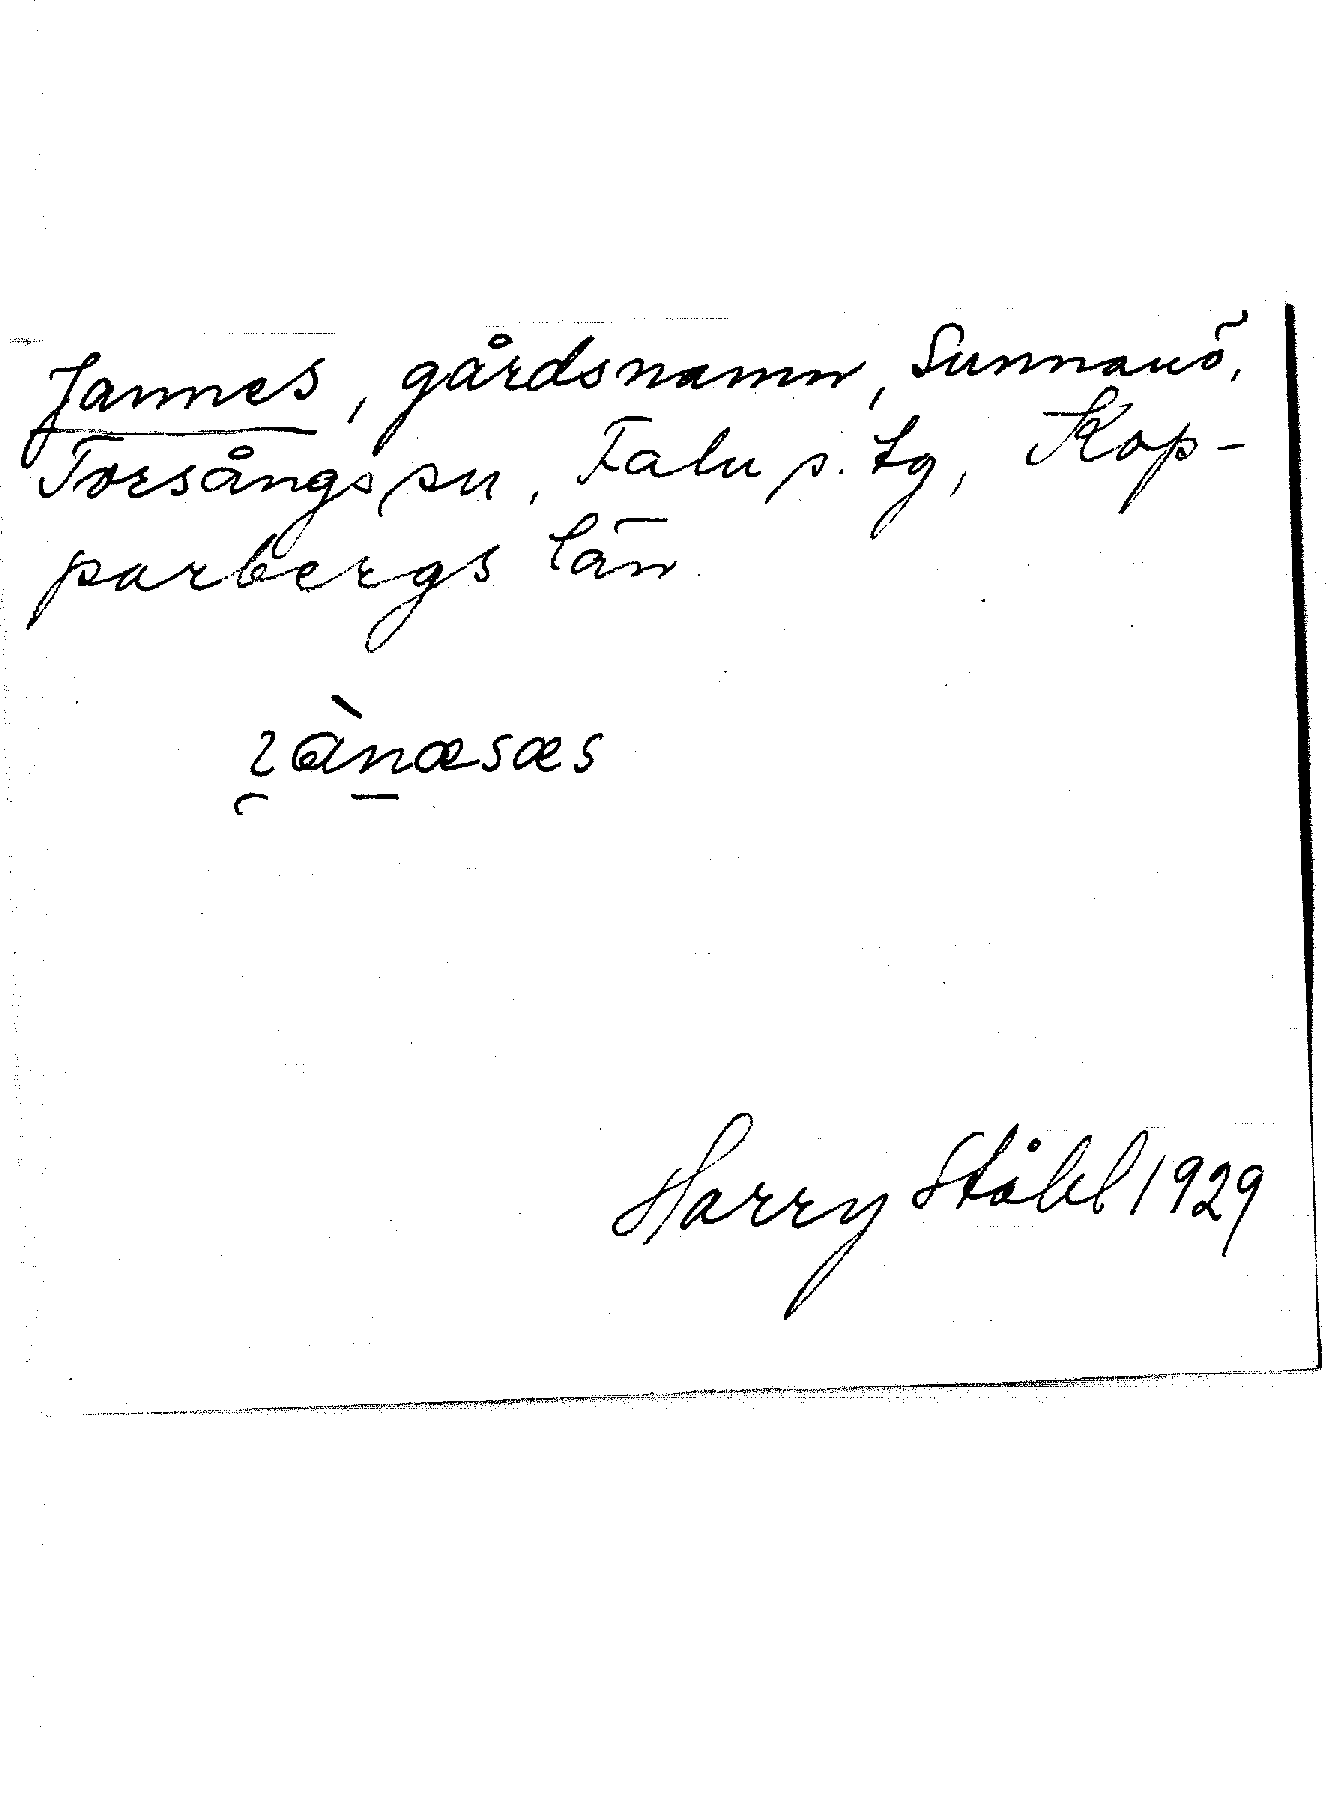 Jannes, gårdsnamn, Sunnanö,
Torsångs sn, Falu s. tg, Kop-
parbergs län
Harry Ståhl 1929